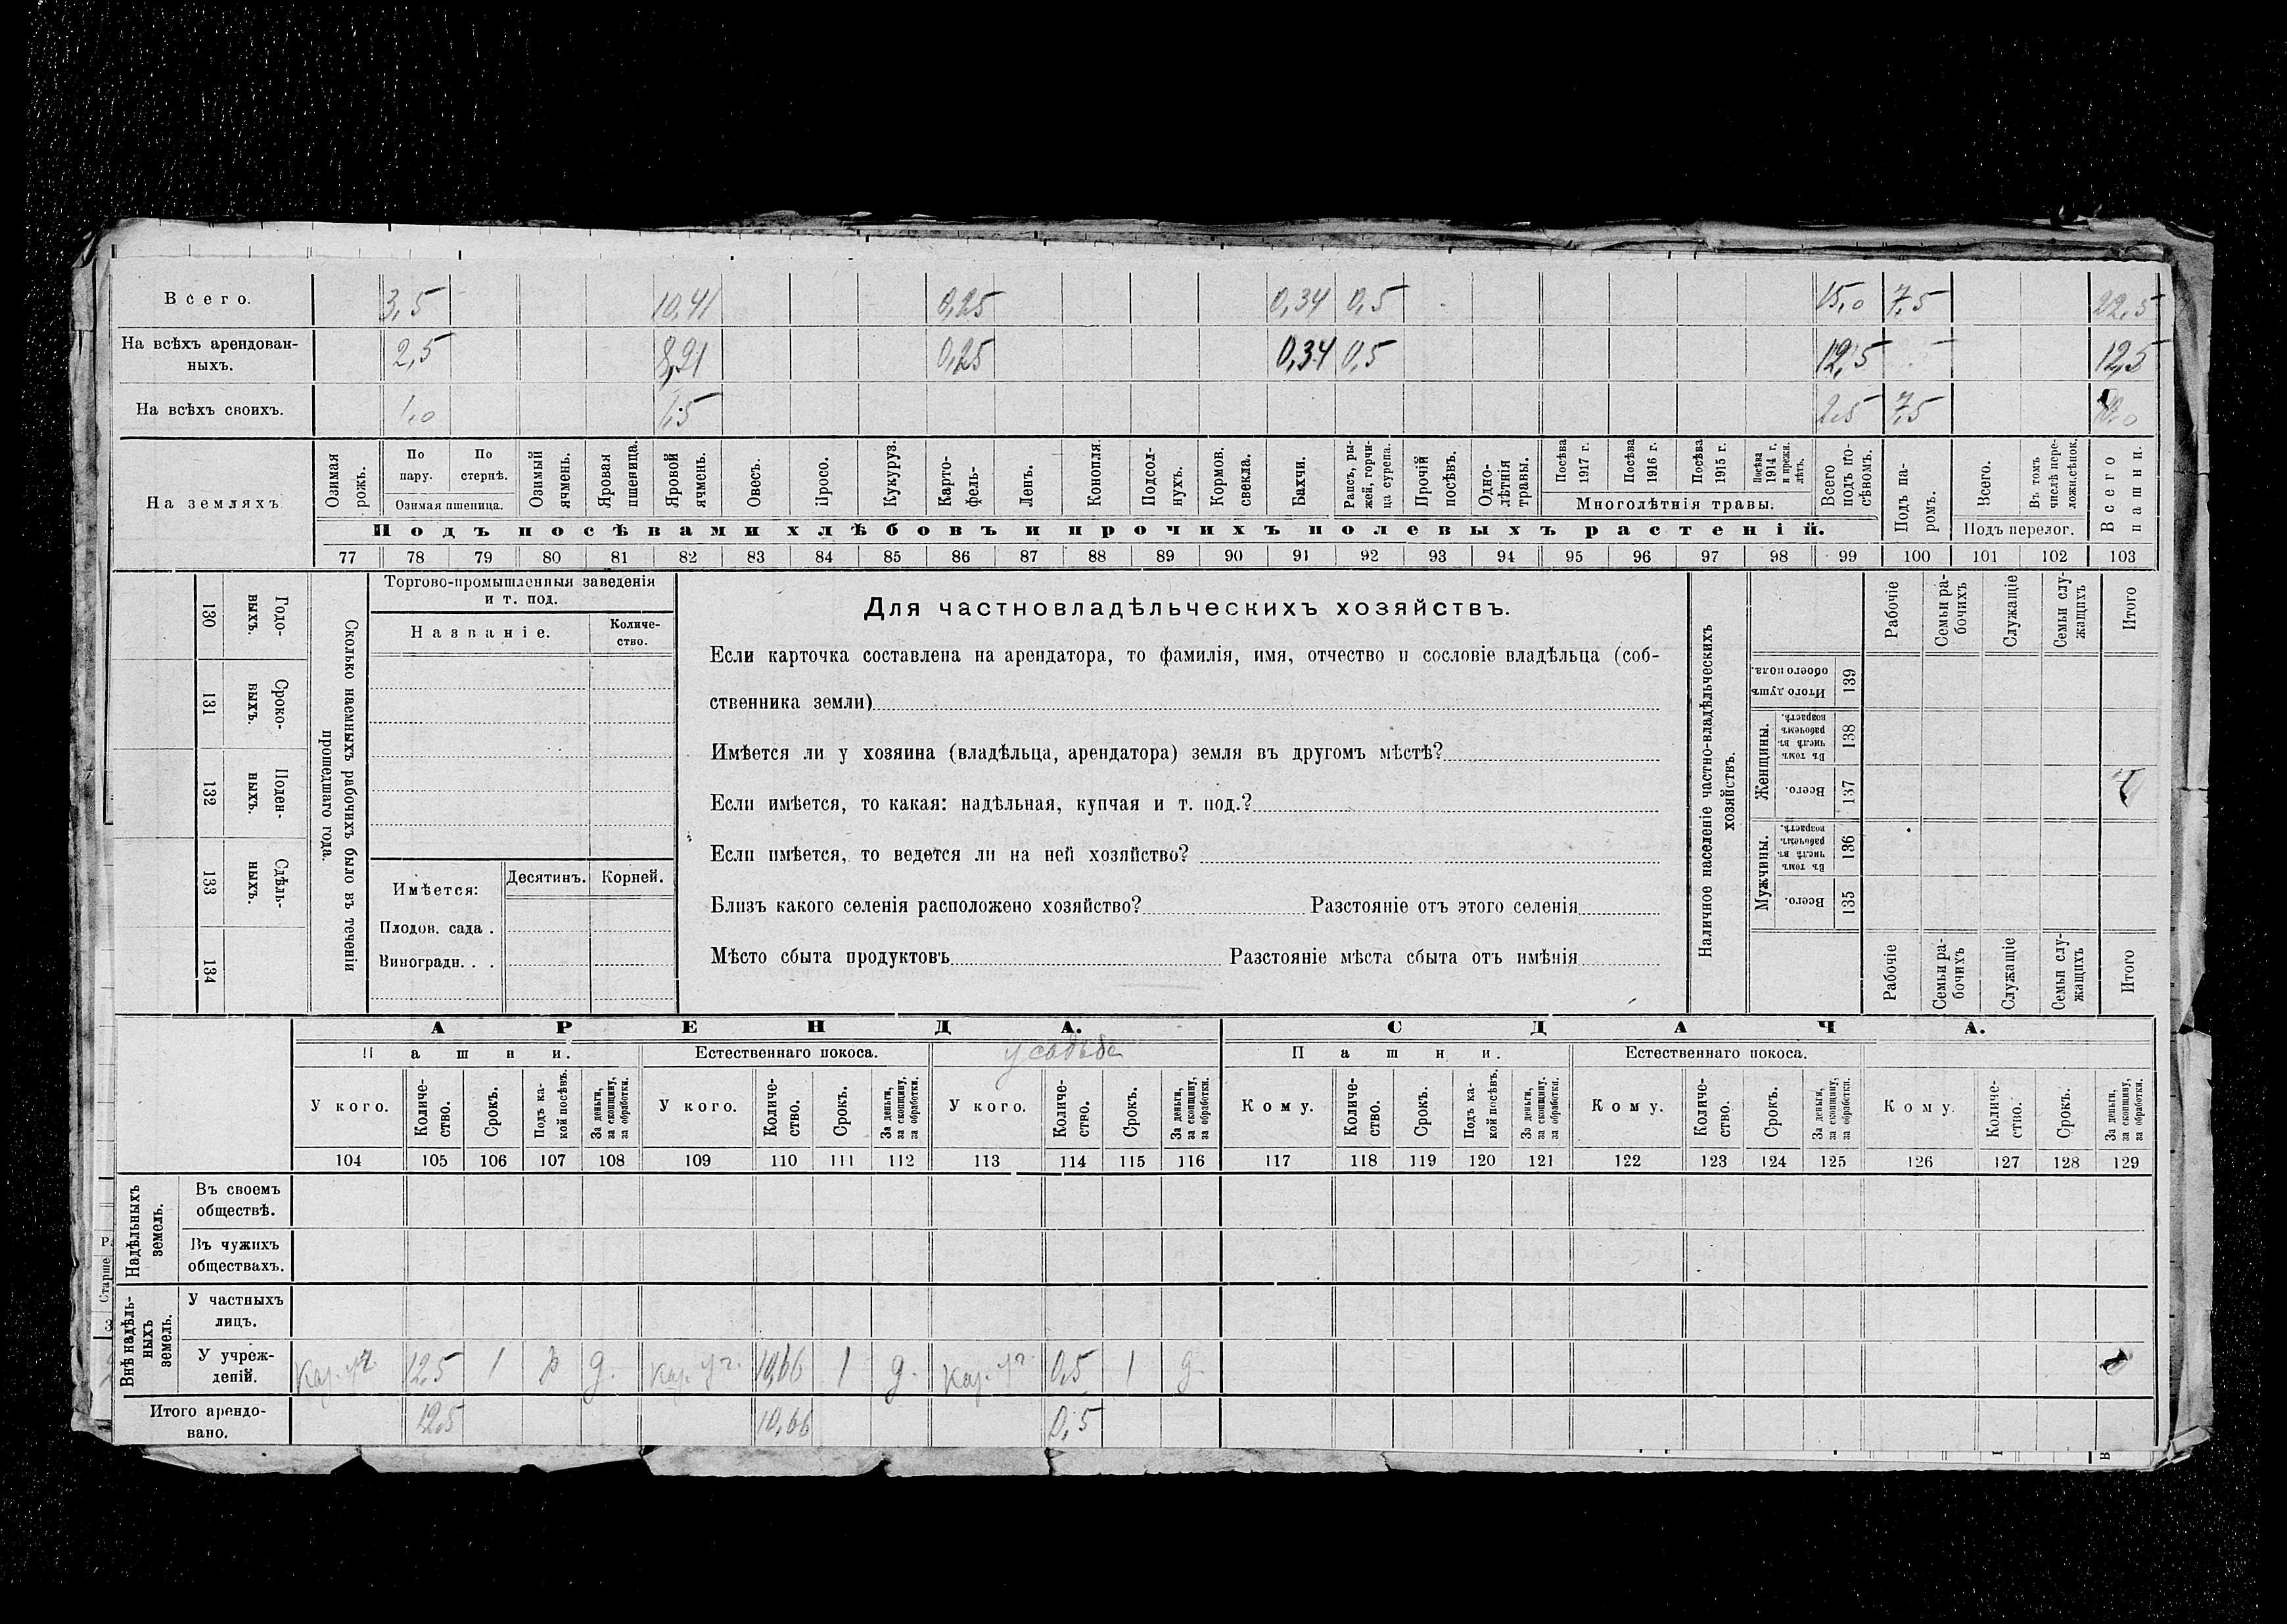 Всего. 3,5 10,41 0,25 0,34 0,5 15,0 7,5 22,5
На всѣхъ арендован-
ныхъ. 2,5 8,91 0,25 0,34 0,5 12,5 12,5
На всѣхъ своихъ. 1,0 1,5 2,5 7,5
На земляхъ.
Озимая рожь.
По пару.
По стернѣ.
Озимая пшеница.
Озимый ячмень.
Яровая пшеница.
Яровой ячмень.
Овесъ.
Просо.
Кукуруз.
Карто-
фель-
Ленъ.
Конопля.
Подсол-
нухъ.
Кормов.
свекла.
Бахчи.
Рапсъ, ры-
жей, горчи-
ца сурепа.
Прочій
посѣвъ.
Одно-
лѣтнія
травы.
Посѣва
1917 г.
Посѣва
1916 г.
Посѣва
1915 г.
Посѣва
1914 г.
и прежн.
лѣтъ.
Многолѣтнія травы.
Всего
подъ по-
сѣвомъ.
Подъ па-
ромъ.
Всего.
Въ томъ
числѣ пере-
ложн.сѣнок.
Подъ перелог.
Всего
пашни.
Подъ посѣвами хлѣбовъ и прочихъ полевыхъ растеній.
77 78 79 80 81 82 83 84 85 86 87 88 89 90 91 92 93 94 95 96 97 98 99 100 101 102 103
130 Годо-
выхъ.
131 Сроко-
выхъ.
132 Поден-
ныхъ.
133 Сдѣль-
ныхъ.
134
Сколько наемныхъ рабочихъ было въ теченіи
прошедшаго года.
Торгово-промышленныя заведенія
и т. под.
Названіе.
Количе-
ство.
Имѣется:
Десятинъ. Корней.
Плодов. сада .
Виноградн. . .
Для частновладѣльческихъ хозяйствъ.
Если карточка составлена на арендатора, то фамилія, имя, отчество и сословіе владѣльца (соб-
ственника земли)
Имѣется ли у хозяина (владѣльца, арендатора) земля въ другомъ мѣстѣ?
Если имѣется, то какая: надѣльная, купчая и т. под.?
Если имѣется, то ведется ли на ней хозяйство?
Близъ какого селенія расположено хозяйство? Разстояніе отъ этого селенія
Мѣсто сбыта продуктовъ Разстояніе мѣста сбыта отъ имѣнія
Наличное населеніе частно-владѣльческихъ
хозяйствъ.
Рабочіе
Семьи ра-
бочихъ
Служащіе
Семьи слу-
жащихъ
Итого
Итого душъ
обоего пола.
139
Женщины.
Въ томъ
числѣ въ
рабочемъ
возрастѣ.
138
Всего.
137
Мужчины.
Въ томъ
числѣ въ
рабочемъ
возрастѣ.
136
Всего.
135
Рабочіе
Семьи ра-
бочихъ
Служащіе
Семьи слу-
жащихъ
Итого
АРЕНДА. СДАЧА.
Пашни. Естественнаго покоса. усадьба Пашни. Естественнаго покоса.
У кого.
Количе-
ство.
Срокъ.
Подъ ка-
кой посѣвъ.
За деньги,
за скопщину,
за обработки.
У кого.
Количе-
ство.
Срокъ.
За деньги,
за скопщину,
за обработки.
У кого.
Количе-
ство.
Срокъ.
За деньги,
за скопщину,
за обработки.
Кому.
Количе-
ство.
Срокъ.
Подъ ка-
кой посѣвъ.
За деньги,
за скопщину.
за обработки.
Кому.
Количе-
ство.
Срокъ.
За деньги,
за скопщину,
за обработки.
Кому.
Количе-
ство.
Срокъ.
За деньги,
за скопщину,
за обработки.
104 105 106 107 108 109 110 111 112 113 114 115 116 117 118 119 120 121 122 123 124 125 126 127 128 129
Надѣльныхъ
земель.
Въ своемъ
обществѣ.
Въ чужихъ
обществахъ.
Внѣ надѣль-
ныхъ
земель.
У частныхъ
лицъ.
У учреж-
деній.
12,5 1 д. 10,66 1 д. 0,5 1 д.
Итого арендо-
вано. 12,5 10,66 0,5
Старше